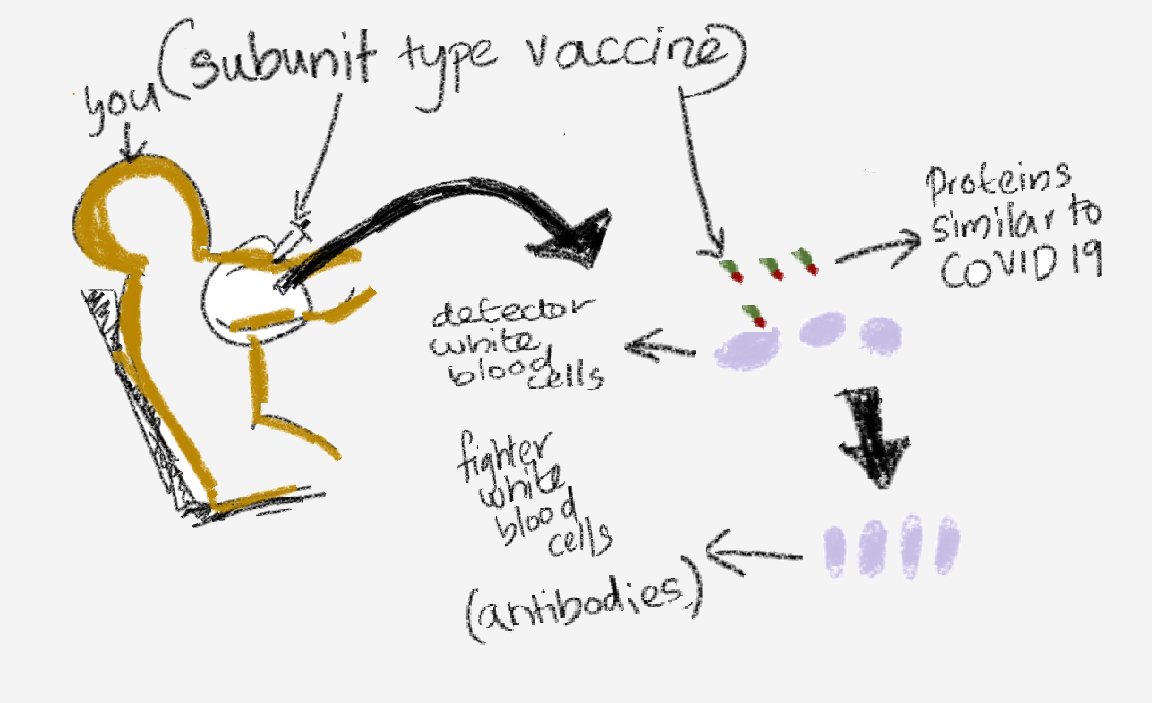 (subunit type vaccine)
you
Proteins
similar to
COVID 19
detector
white
blood
cells
fighter
white
blood
cells
(antibodies)